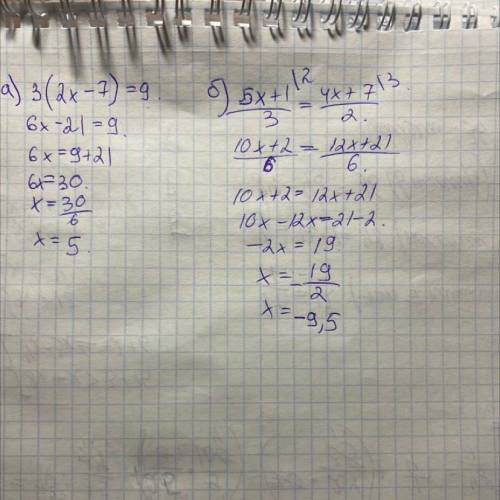 а) 3(2x-7)=9.
6x-21=9
6x=9+21
6x=30.
x=30/6
x=5.
б) 5x+1\2/3=4x+7\3/2.
10x+2/6=12x+21/6.
10x+2=12x+21
10x-12x=21-2.
-2x=19
x=-19/2
x=-9,5